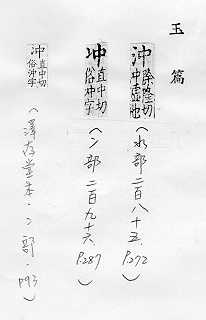 玉篇
沖 除隆切 沖虛也 （水部二百八十五、P.272）
冲 直中切 俗沖字 （冫部二百九十六、P.287）
冲 直中切 俗沖字 （澤存堂本・冫部・P93）